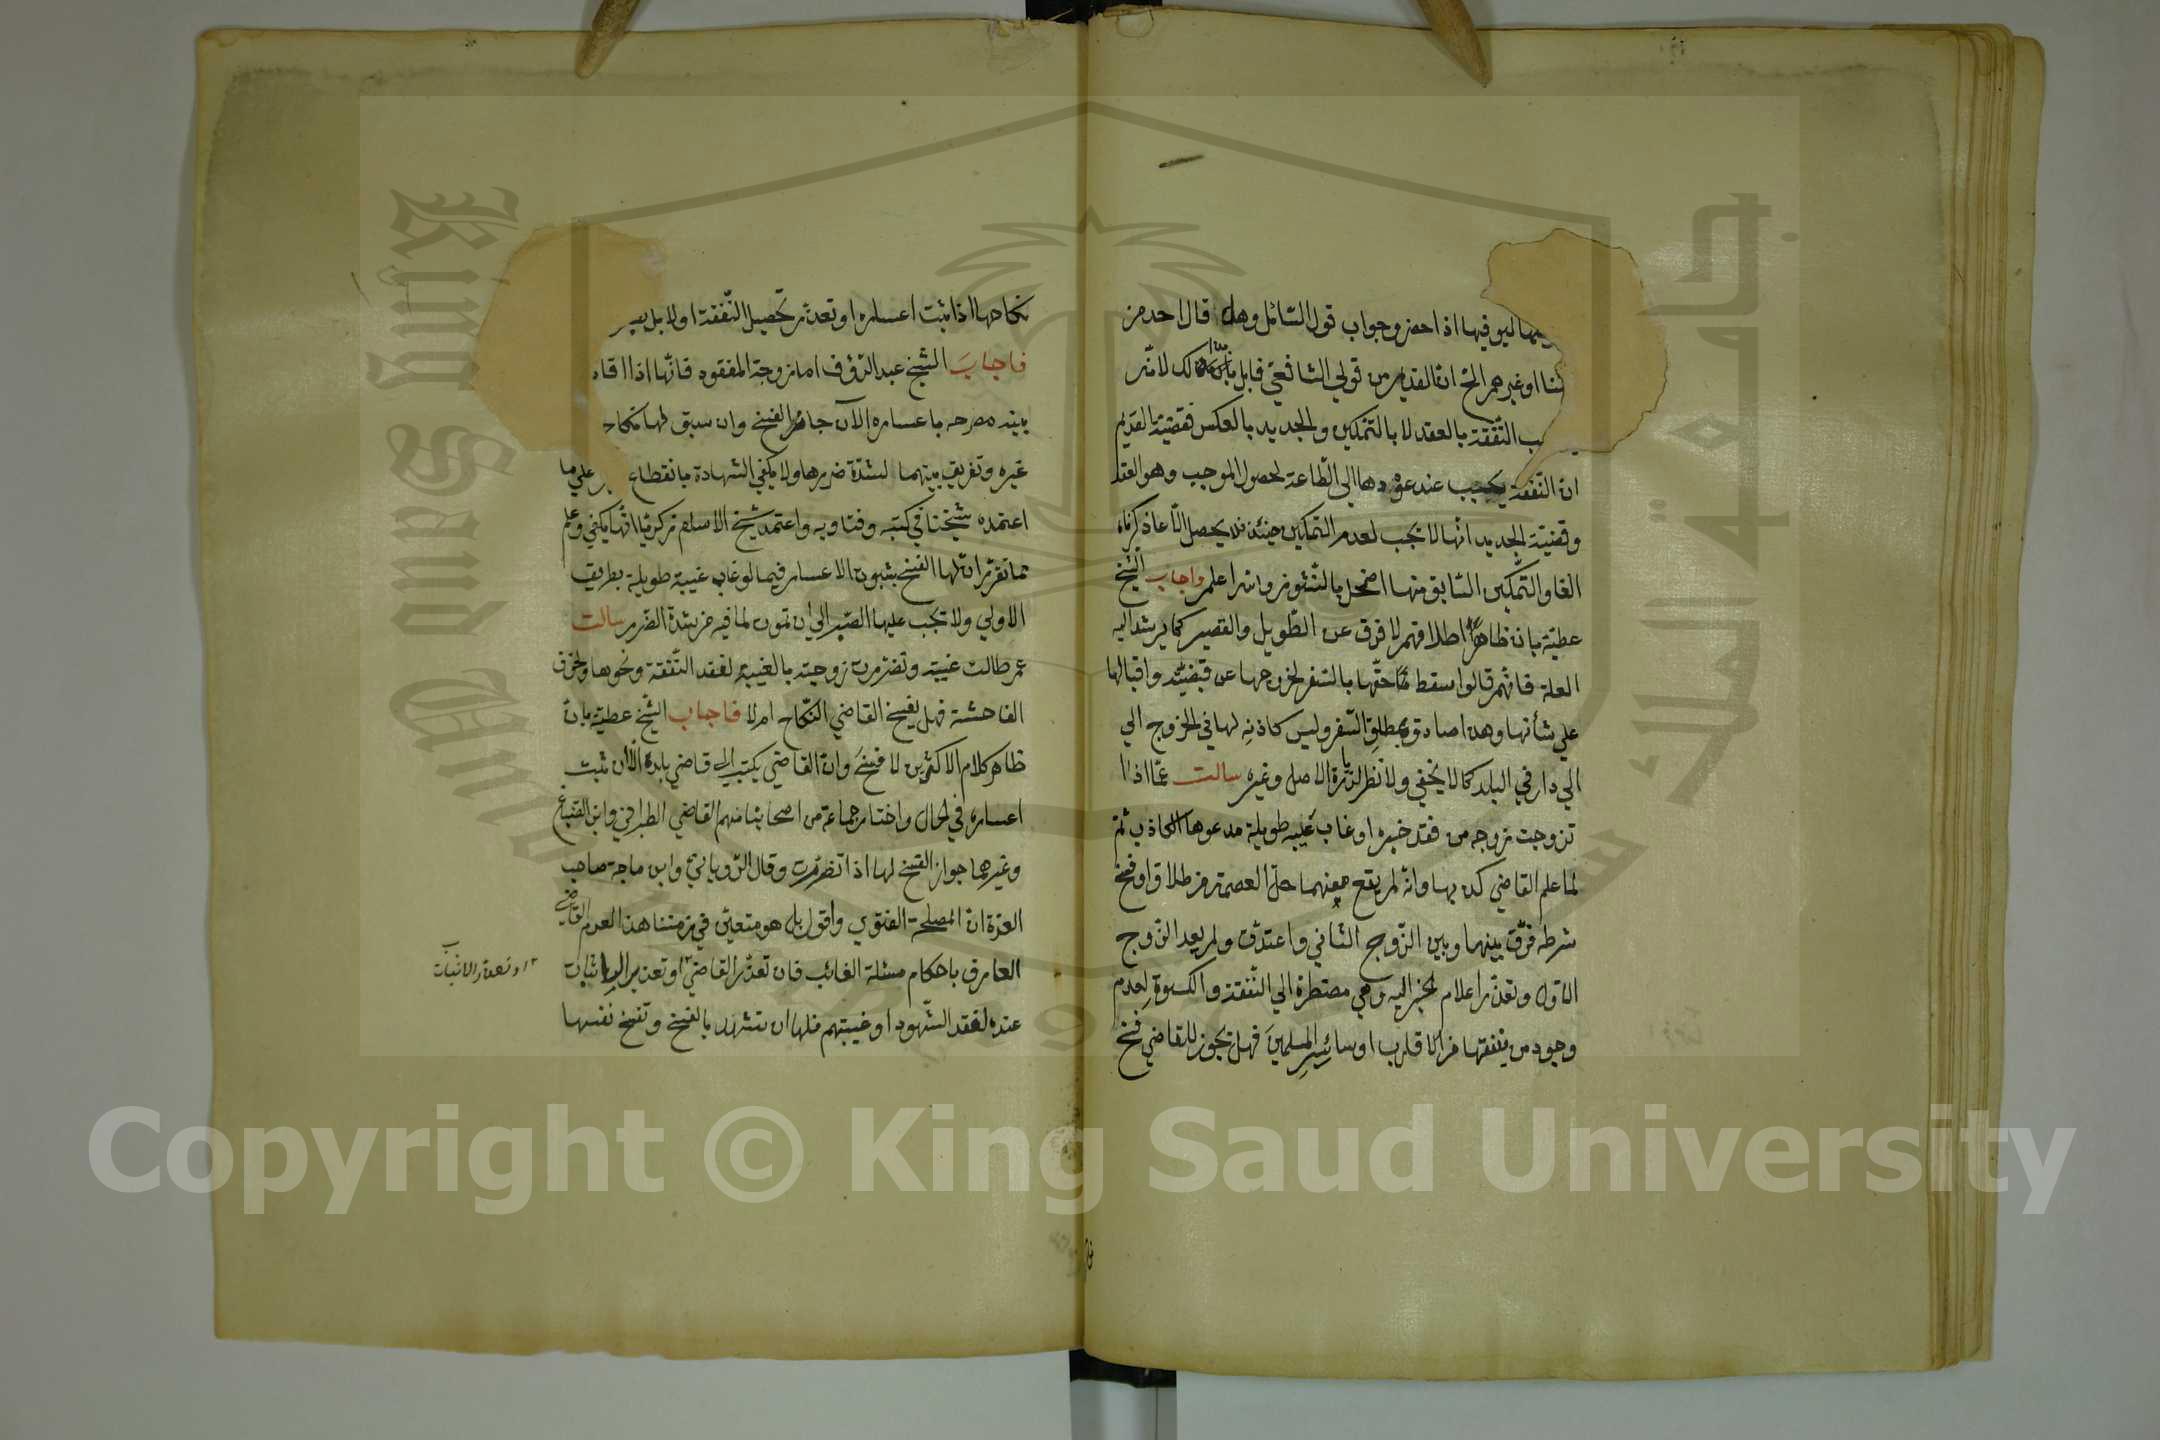 قول السائل وهل قال احد من
او غيرهم الخ ان القديم من قولي الشافعي قابل بان ذلك لانه
النفقة بالعقد لا بالتمكين والجديد بالعكس فقضية القديم
ان النفقة تجب عند عودها الى الطاعة لحصول الموجب وهو العقد
وقضية الجديد انها لا تجب لعدم التمكين حينئذ فلا يحصل الا عا ذكرناه
الغا والتمكين السابق منها اضمحل بالنشوز والله اعلم واجاب الشيخ
عطية بان ظاهر اطلاقهم لا فرق عن الطويل والقصير كما يرشد اليه
العلة فانهم قالوا سقط حقها بالسفر لخروجها عن قبضته واقبالها
علي شأنها وهذا صادق بمطلق السفر وليس كاذنه لها في الخروج الي
الي دار في البلد كما لا يخفي ولا نظر لزيارة الاصل وغيره سالت عما اذا
تزوجت زوجه من فقد خبره او غاب غيبه طويلة مدعوها الكاذب ثم
لما علم القاضي كذبها وانه لم يقع منهما حل العصمة من طلاق او فسخ
شرطه فرق بينهما وبين الزوج الثاني واعتدت ولم يعد الزوج
الاول وتعذر اعلام الخبر اليه وهي مضطرة الي النفقة والكسوة لعدم
وجود من ينفقها من الاقارب او سائر المسلمين فهل تجوز للقاضي فسخ
نكاحها اذا ثبت اعساره او تعذر تحصيل النفقة اولا بل يعسر
فاجاب الشيخ عبد الرؤف اما زوجة المفقود فانها اذا اقام
بينه مصرحه باعساره الآن جاز الفسخ وان سبق لها نكاح
غيره وتفريق بينهما لشدة ضررها ولا يكفي الشهادة بانقطاع علي ما
اعتمده شيخنا في كتبه وفتاويه واعتمد شيخ الاسلام زكريا انها يكفي وعلم
مما تقرر ان لها الفسخ بثبوت الاعسار فيما لو غاب غيبة طويلة بطريق
الاولي ولا تجب عليها الصبر الي ان تموت لما فيه من شدة الضرر سالت
عمر طالت غيبته وتضررت زوجته بالغيبة لفقد النفقة ونحوها وخوف
الفاحشة فهل يفسخ القاضي النكاح ام لا فاجاب الشيخ عطية بان
ظاهر كلام الاكثرين لا فسخ وان القاضي يكتب الي قاضي بلده الا ان ثبت
اعساره في الحال واختار جماعة من اصحابنا منهم القاضي الطبراني وابن الصباغ
وغيرهما جواز الفسخ لها اذا تضررت وقال الروياني وابن ماجة صاحب
العزة ان المصلحة الفتوي واقول بل هو متعين في زمننا هذا لعدم القاضي
العارف باحكام مسئلة الغائب فان تعذر القاضي او تعذر الاثبات
عنده لفقد الشهود او غيبتهم فلها ان تشهد بالفسخ وتفسخ نفسها
او تعذر الاثبات